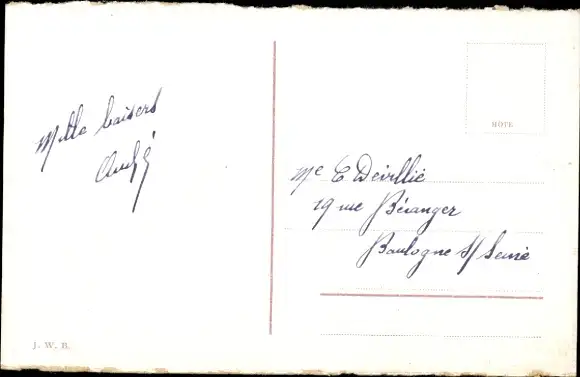 Mille baisers
André
Me E Devillié
19 rue Béranger
Boulogne s/ Seine
J. W. B.